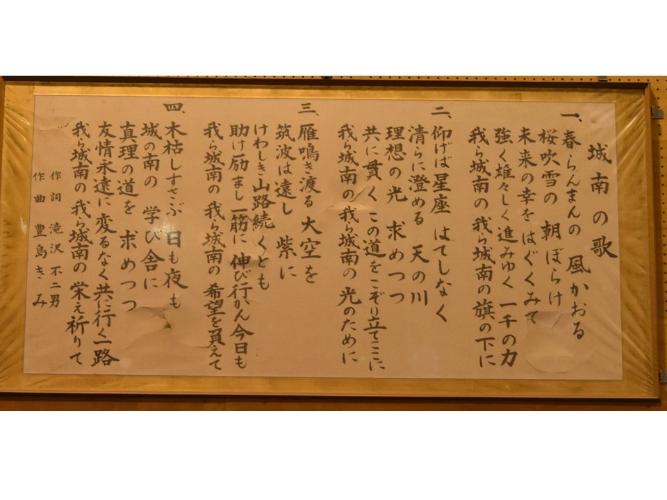 城南の歌
一、春らんまんの 風かおる
桜吹雪の 朝ぼらけ
未来の幸を はぐくみて
強く雄々しく進みゆく 一千の力
我ら城南の 我ら城南の旗の下に
二、仰げば星座 はてしなく
清らに澄める 天の川
理想の光 求めつつ
共に貫く この道をこぞり立てここに
我ら城南の 我ら城南の 光のために
三、雁鳴き渡る 大空を
筑波は遠し 紫に
けわしき山路続くとも
助け励まし一筋に 伸び行かん今日も
我ら城南の 我ら城南の 希望を負えて
四、木枯しすさぶ 日も夜も
城の南の 学び舎に
真理の道を 求めつつ
友情永遠に変るなく共に行く一路
我ら城南の 我ら城南の 栄え祈りて
作詞 滝沢 不二男
作曲 豊島きみ